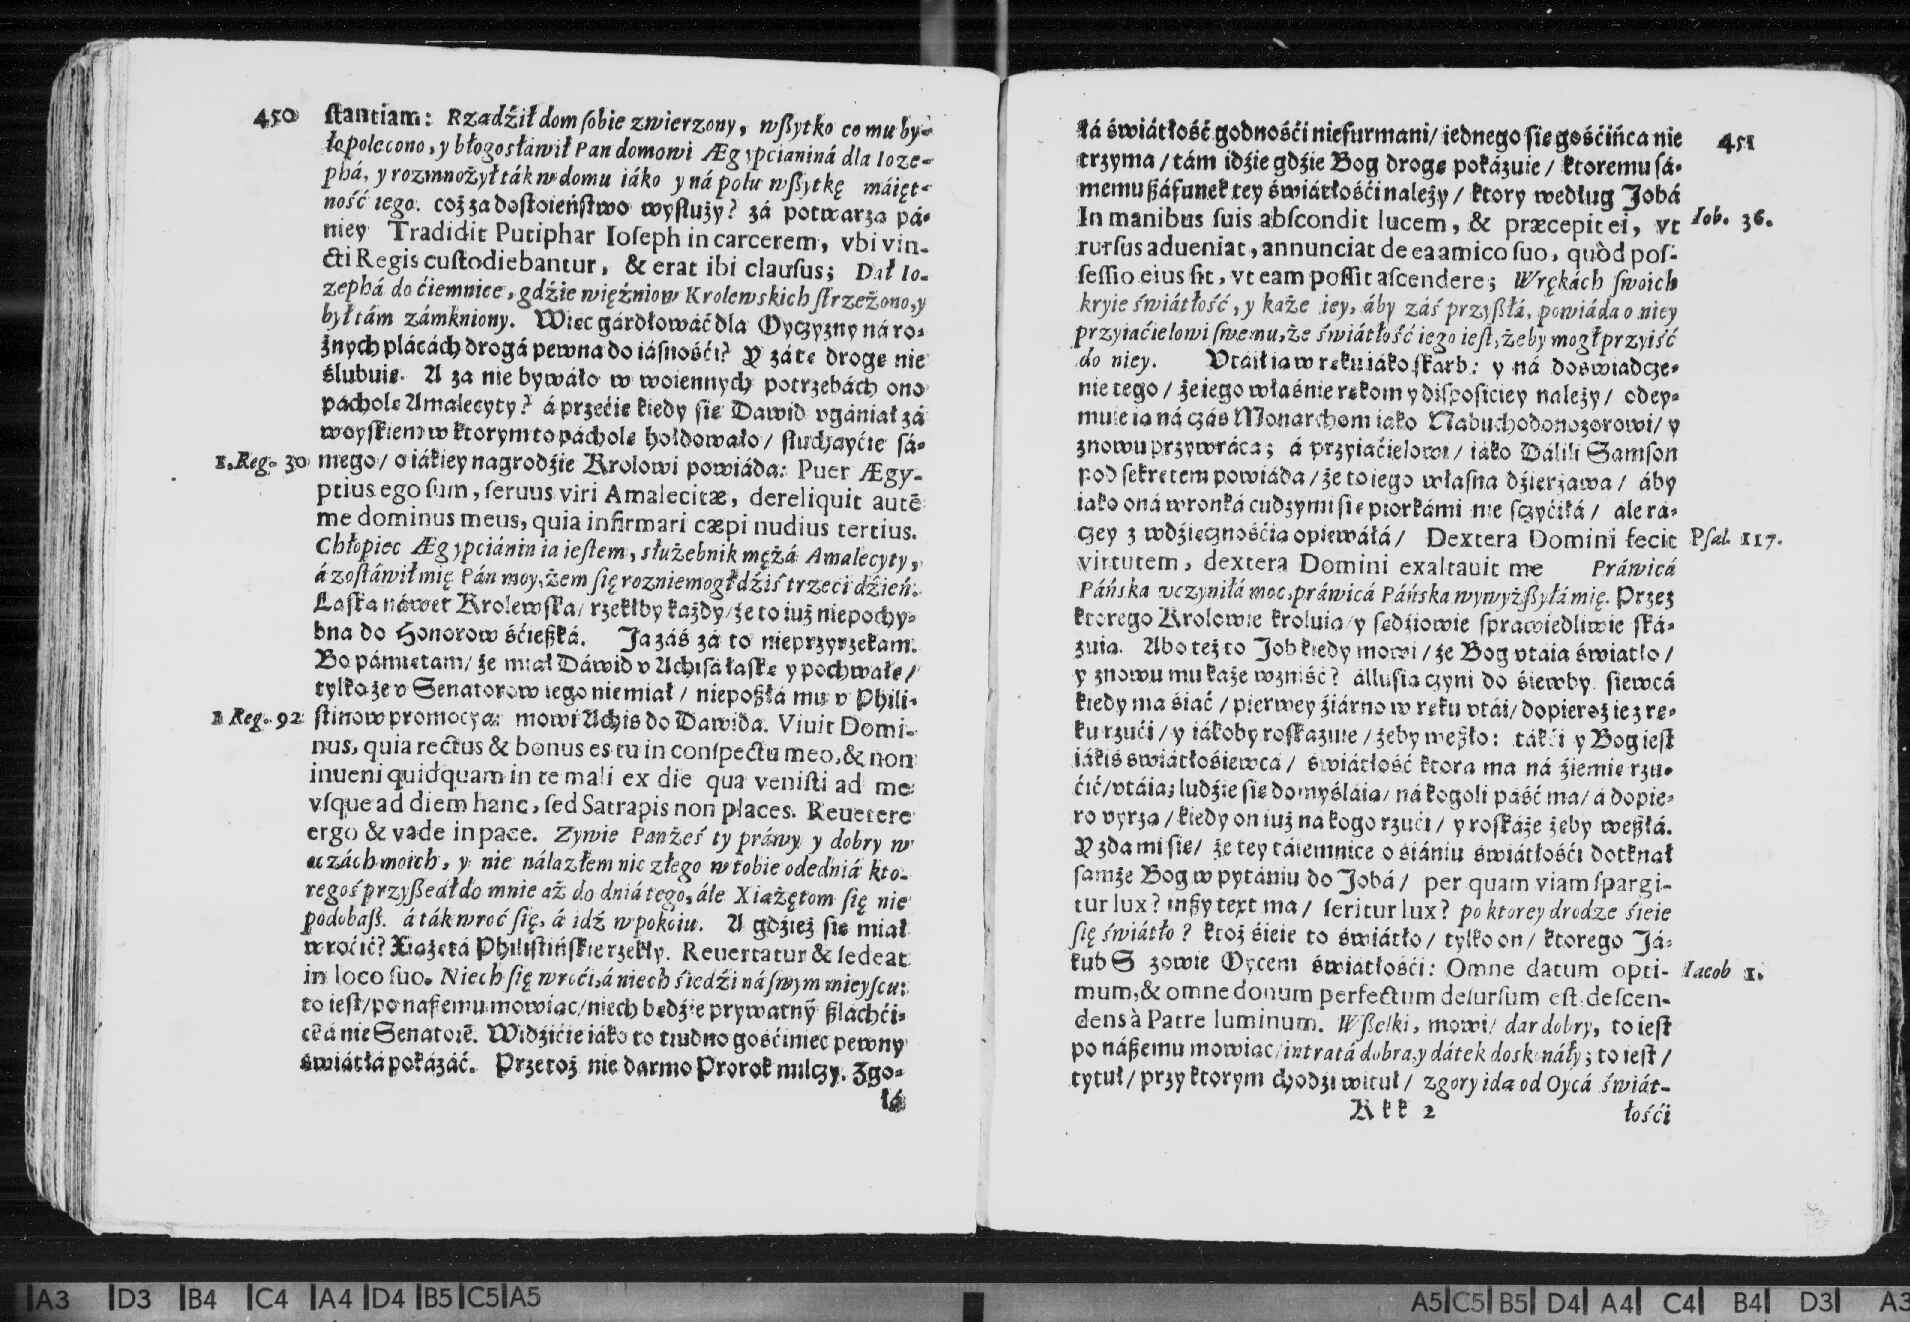 450
stantiam: Rządźił dom sobie zwierzony, wßytko co mu by-
ło polecono, y błogosławił Pan domowi Ægypcianiná dla Ioze-
phá, y rozmnożył ták w domu iáko y ná polu wßytkę máięt-
ność iego. coż za dostoieństwo wysłuży? zá potwarzą pá-
niey Tradidit Putiphar Ioseph in carcerem, vbi vin-
cti Regis custodiebantur, & erat ibi clausus; Dał Io-
zephá do ćiemnice, gdźie więźniow Krolewskich strzeżono, y
był tám zámkniony. Więc gárdłowáć dla Oyczyzny ná ro-
żnych plácách drogá pewna do iásnośći? Y zá tę drogę nie
ślubuię. A za nie bywáło w woiennych potrzebách ono
pácholę Amalecyty? á przećię kiedy się Dawid vgániał zá
woyskiem w ktorym to pácholę hołdowało/ słuchayćie sá-
1. Reg. 30 mego/ o iákiey nagrodźie Krolowi powiáda: Puer Ægy-
ptius ego sum, seruus viri Amalecitæ, dereliquit autē
me dominus meus, quia infirmari cæpi nudius tertius.
Chłopiec Ægypciánin ia iestem, służebnik mężá Amalecyty,
á zostáwił mię Pán moy, żem się rozniemogł dźiś trzeci dźień.
Łaska náwet Krolewska/ rzekłby każdy/ że to iuż niepochy-
bna do Honorow śćieszká. Ja záś zá to nieprzyrzekam.
Bo pámiętam/ że miał Dáwid v Achisá łaskę y pochwałę/
tylko że v Senatorow iego nie miał/ nieposzłá mu v Phili-
1 Reg. 92 stinow promocya: mowi Achis do Dawida. Viuit Domi-
nus, quia rectus & bonus es tu in conspectu meo, & non
inueni quidquam in te mali ex die qua venisti ad me
vsque ad diem hanc, sed Satrapis non places. Reuertere
ergo & vade in pace. Zywie Pan żeś ty práwy y dobry w
oczách moich, y nie nálazłem nic złego w tobie ode dniá kto-
regoś przyßedł do mnie aż do dniá tego, ále Xiążętom się nie
podobaß. á ták wroć się, á idź w pokoiu. A gdźież się miał
wroćić? Xiążętá Philistińskie rzekły. Reuertatur & sedeat
in loco suo. Niech się wroći, á niech śiedźi ná swym mieyscu:
to iest/ po naszemu mowiąc/ niech będźie prywatnÿ ßláchći-
cē á nie Senatorē. Widźićie iáko to trudno gośćiniec pewny
świátłá pokázáć. Przetoż nie darmo Prorok milczy. Zgo-
łá
451
łá świátłość godnośći nie furmani/ iednego się gośćińca nie
trzyma/ tám idźie gdźie Bog drogę pokázuie/ ktoremu sá-
memu ßáfunek tey świátłośći należy/ ktory według Jobá
In manibus suis abscondit lucem, & præcepit ei, vt Iob. 36.
rursus adueniat, annunciat de ea amico suo, quòd pos-
sessio eius sit, vt eam possit ascendere; W rękách swoich
kryie świátłość, y każe iey, áby záś przyßłá, powiáda o niey
przyiaćielowi swemu, że świátłość iego iest, żeby mogł przyiść
do niey. Vtáił ią w ręku iáko skarb: y ná doświadcze-
nie tego/ że iego właśnie rękom y disposiciey należy/ odey-
muie ią ná czás Monarchom iáko Nabuchodonozorowi/ y
znowu przywráca; á przyiaćielowi/ iáko Dálili Samson
pod sekretem powiáda/ że to iego własna dźierżawa/ áby
iáko oná wronká cudzymi się piorkámi nie sczyćiłá/ ale rá-
czey z wdźięcznośćią opiewáłá/ Dextera Domini fecit Psal. 117.
virtutem, dextera Domini exaltauit me Práwicá
Páńska vczyniłá moc, práwicá Páńska wywyżßyłá mię. Przez
ktorego Krolowie kroluią/ y sędźiowie sprawiedliwie ská-
zuią. Abo też to Job kiedy mowi/ że Bog vtaia świátło/
y znowu mu każe wzniść? állusią czyni do śiewby. śiewcá
kiedy ma śiać/ pierwey źiárno w ręku vtái/ dopieroż ie z rę-
ku rzući/ y iákoby roskázuie/ żeby weßło: tákći y Bog iest
iákiś świátłośiewcá/ świátłość ktorą ma ná źiemię rzu-
ćić/ vtáia; ludźie się domyśláią/ ná kogoli páść ma/ á dopie-
ro vyrzą/ kiedy on iuż na kogo rzući/ y roskáże żeby weßłá.
Y zda mi się/ że tey táiemnice o śiániu świátłośći dotknął
samże Bog w pytániu do Jobá/ per quam viam spargi-
tur lux? inßy text ma/ seritur lux? po ktorey drodze śieie
się świátło? ktoż śieie to świátło/ tylko on/ ktorego Já-
kub S zowie Oycem świátłośći: Omne datum opti- Iacob 1.
mum, & omne donum perfectum desursum est descen-
dens à Patre luminum. Wßelki, mowi/ dar dobry, to iest
po náßemu mowiąc/ intratá dobra, y dátek doskonáły; to iest/
tytuł/ przy ktorym chodźi wituł/ z gory idą od Oycá świát-
Kkk 2
łośći